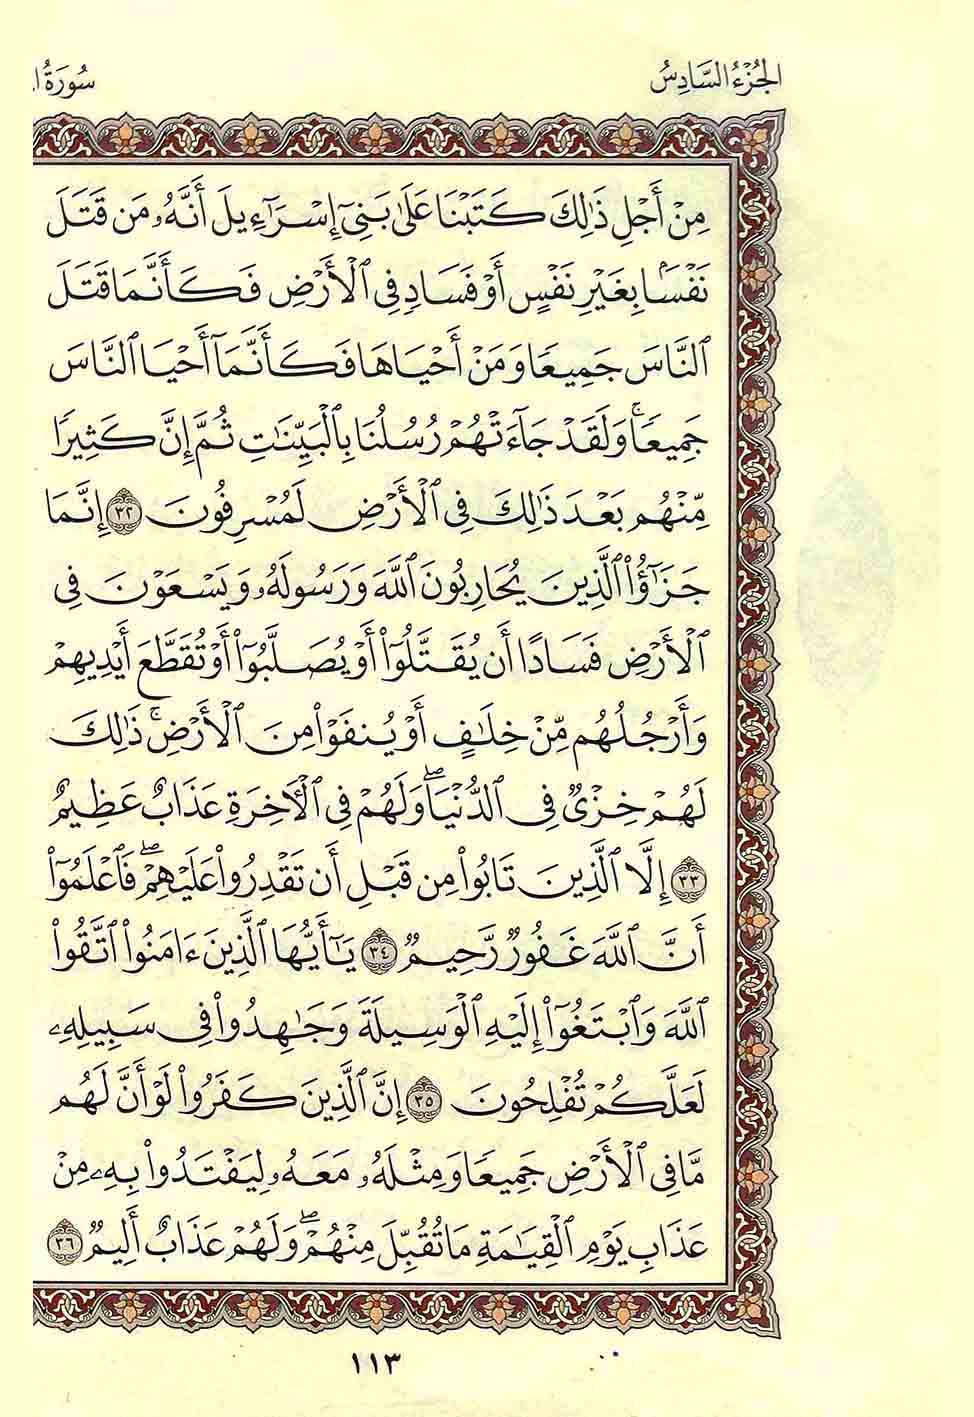 الجزء السادس
سورة ا
مِنْ أَجْلِ ذَٰلِكَ كَتَبْنَا عَلَىٰ بَنِىٓ إِسْرَٰٓءِيلَ أَنَّهُۥ مَن قَتَلَ
نَفْسًۢا بِغَيْرِ نَفْسٍ أَوْ فَسَادٍ فِى ٱلْأَرْضِ فَكَأَنَّمَا قَتَلَ
ٱلنَّاسَ جَمِيعًا وَمَنْ أَحْيَاهَا فَكَأَنَّمَآ أَحْيَا ٱلنَّاسَ
جَمِيعًا ۚ وَلَقَدْ جَآءَتْهُمْ رُسُلُنَا بِٱلْبَيِّنَٰتِ ثُمَّ إِنَّ كَثِيرًا
مِّنْهُم بَعْدَ ذَٰلِكَ فِى ٱلْأَرْضِ لَمُسْرِفُونَ ٣٢ إِنَّمَا
جَزَٰٓؤُا۟ ٱلَّذِينَ يُحَارِبُونَ ٱللَّهَ وَرَسُولَهُۥ وَيَسْعَوْنَ فِى
ٱلْأَرْضِ فَسَادًا أَن يُقَتَّلُوٓا۟ أَوْ يُصَلَّبُوٓا۟ أَوْ تُقَطَّعَ أَيْدِيهِمْ
وَأَرْجُلُهُم مِّنْ خِلَٰفٍ أَوْ يُنفَوْا۟ مِنَ ٱلْأَرْضِ ۚ ذَٰلِكَ
لَهُمْ خِزْىٌ فِى ٱلدُّنْيَا ۖ وَلَهُمْ فِى ٱلْـَٔاخِرَةِ عَذَابٌ عَظِيمٌ
٣٣ إِلَّا ٱلَّذِينَ تَابُوا۟ مِن قَبْلِ أَن تَقْدِرُوا۟ عَلَيْهِمْ ۖ فَٱعْلَمُوٓا۟
أَنَّ ٱللَّهَ غَفُورٌ رَّحِيمٌ ٣٤ يَٰٓأَيُّهَا ٱلَّذِينَ ءَامَنُوا۟ ٱتَّقُوا۟
ٱللَّهَ وَٱبْتَغُوٓا۟ إِلَيْهِ ٱلْوَسِيلَةَ وَجَٰهِدُوا۟ فِى سَبِيلِهِۦ
لَعَلَّكُمْ تُفْلِحُونَ ٣٥ إِنَّ ٱلَّذِينَ كَفَرُوا۟ لَوْ أَنَّ لَهُم
مَّا فِى ٱلْأَرْضِ جَمِيعًا وَمِثْلَهُۥ مَعَهُۥ لِيَفْتَدُوا۟ بِهِۦ مِنْ
عَذَابِ يَوْمِ ٱلْقِيَٰمَةِ مَا تُقُبِّلَ مِنْهُمْ ۖ وَلَهُمْ عَذَابٌ أَلِيمٌ ٣٦
١١٣